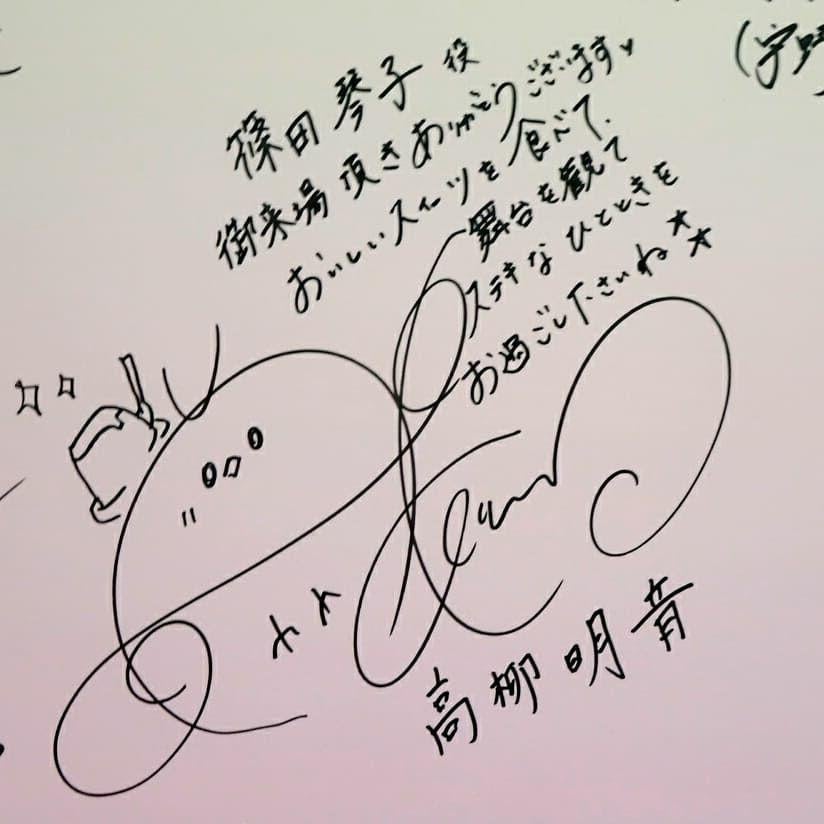 篠田琴子 役
御来場 頂き ありがとうございます♥
おいしいスイーツを食べて、
舞台を観て
ステキなひとときを
お過ごし下さいね★★
高柳明音
(宇野